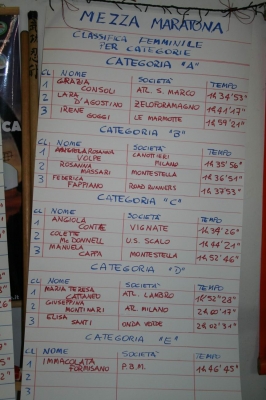 MEZZA MARATONA
CLASSIFICA FEMMINILE
PER CATEGORIE
CATEGORIA "A"
CL NOME SOCIETÀ TEMPO
1 GRAZIA CONSOLI ATL. S. MARCO 1h34'53"
2 LARA D'AGOSTINO ZELOFORAMAGNO 1h41'17"
3 IRENE GOGGI LE MARMOTTE 1h59'21"
CATEGORIA "B"
CL NOME SOCIETÀ TEMPO
1 ROSANNA VOLPE CANOTTIERI MILANO 1h35'56"
2 ROSANNA MASSARI MONTESTELLA 1h36'51"
3 FEDERICA FAPPIANO ROAD RUNNERS 1h37'53"
CATEGORIA "C"
CL NOME SOCIETÀ TEMPO
1 ANGIOLA CONTE VIGNATE 1h34'26"
2 COLETTE Mc DONNELL U.S. SCALO 1h44'21"
3 MANUELA CAPPA MONTESTELLA 1h52'46"
CATEGORIA "D"
CL NOME SOCIETÀ TEMPO
1 MARIA TERESA CATTANEO ATL. LAMBRO 1h52'28"
2 GIUSEPPINA MONTINARI ATL. MILANO 2h00'17"
3 ELISA SANTI ONDA VERDE 2h02'34"
CATEGORIA "E"
CL NOME SOCIETÀ TEMPO
1 IMMACOLATA FORMISANO P.B.M. 1h46'45"
2
3